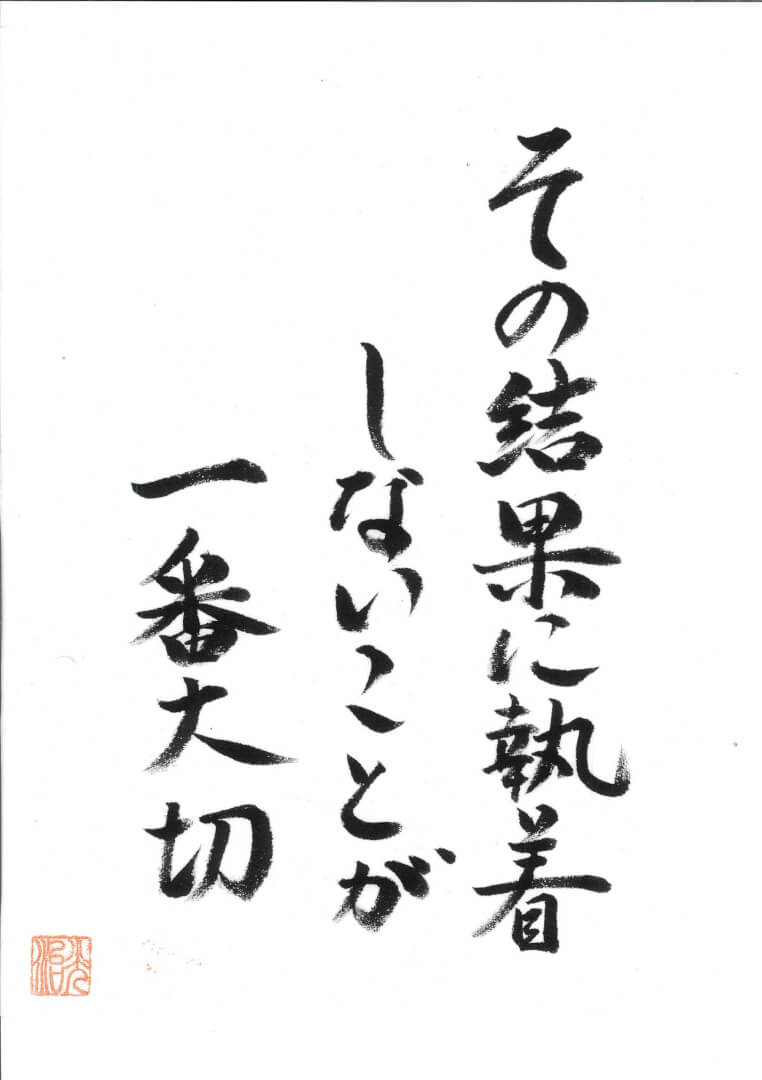 その結果に執着
しないことが
一番大切